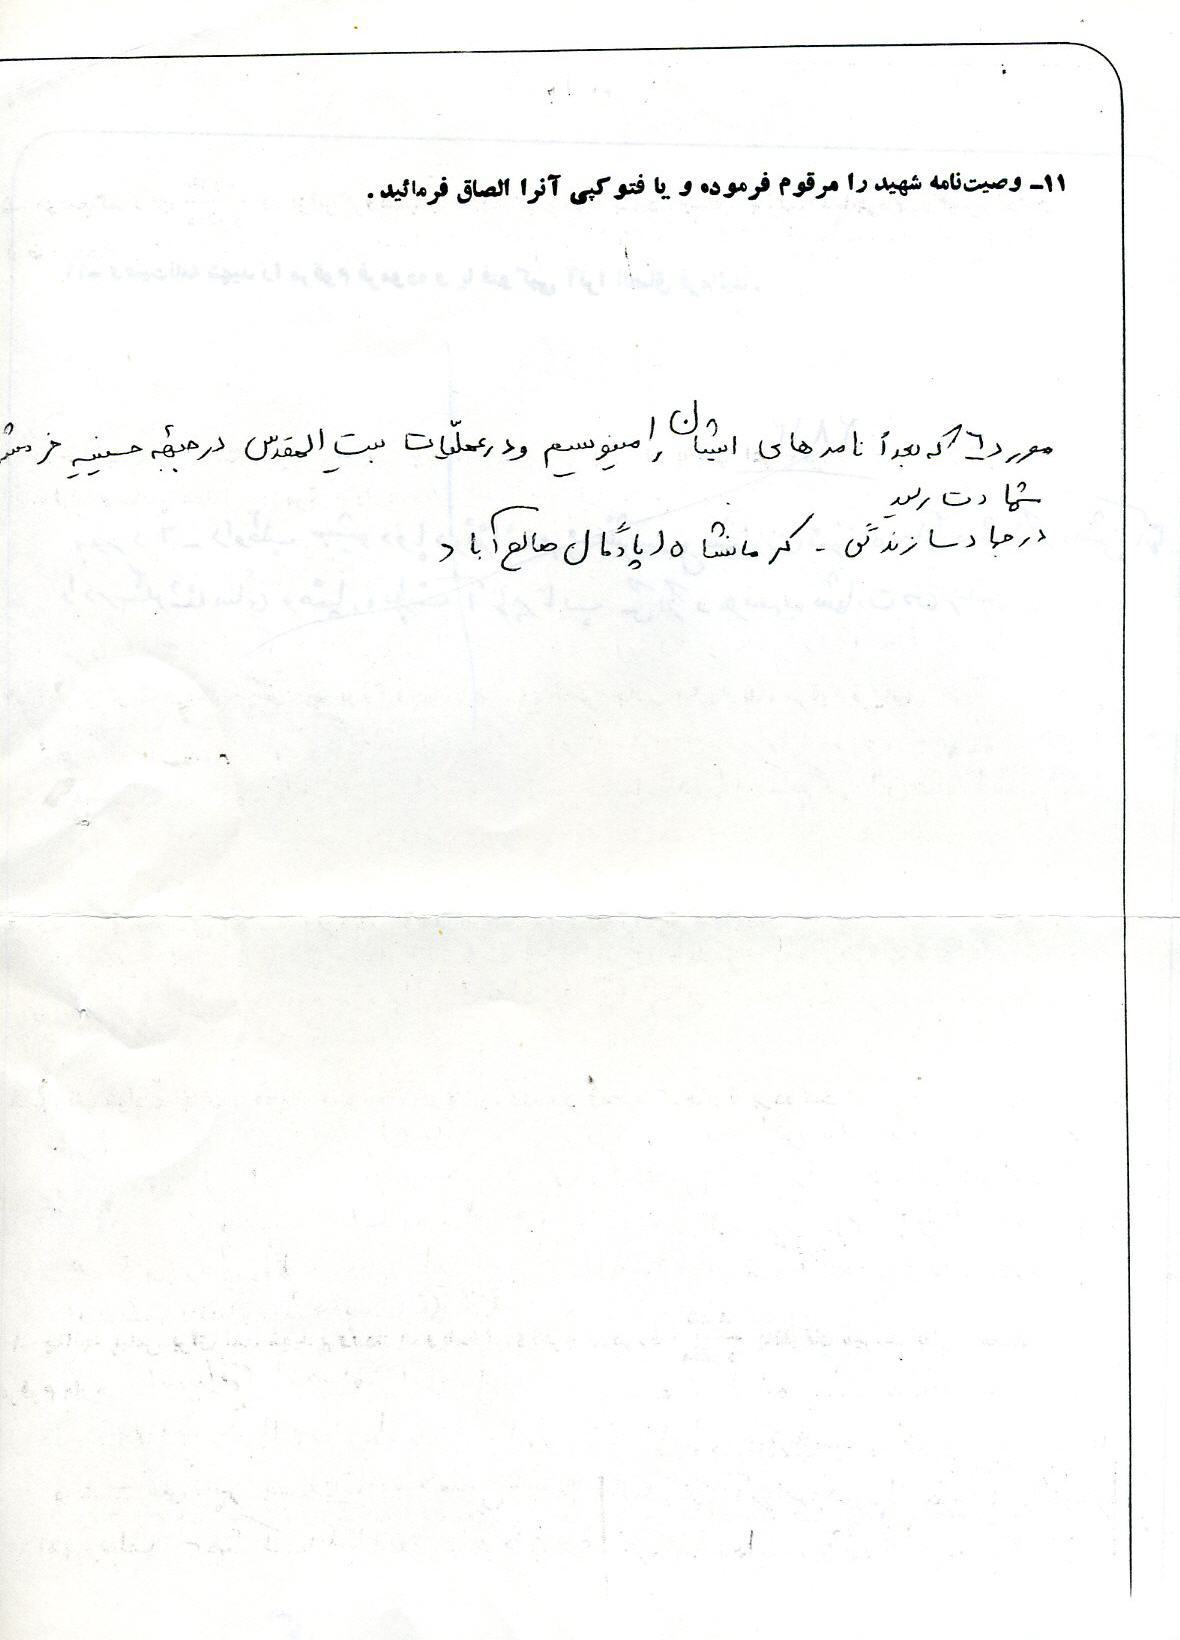 ۱۱ـ وصیت‌نامه شهید را مرقوم فرموده و یا فتوکپی آنرا الصاق فرمائید.
مورد ۶ که بعداً نامه‌های ایشان را مینویسیم ودر عملیات بیت المقدس در جبهه حسینیه خرمشهر
شهادت رسید
در جهاد سازندگی - کرمانشاه پادگان صالح آباد